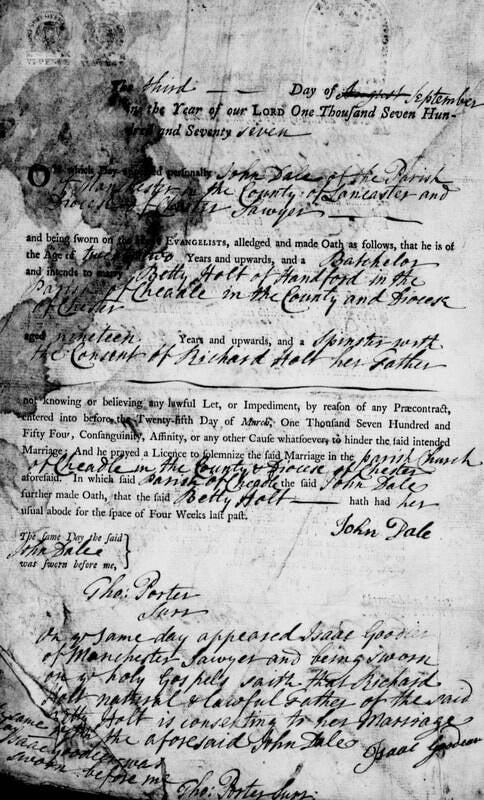 The third — — Day of August September
in the Year of our LORD One Thousand Seven Hun-
dred and Seventy seven
ON which Day appeared personally John Dale of the Parish
of Manchester in the County of Lancaster and
Diocese of Chester Sawyer — —
and being sworn on the Holy EVANGELISTS, alledged and made Oath as follows, that he is of
the Age of twenty two Years and upwards, and a Batchelor
and intends to marry Betty Holt of Handford in the
Parish of Cheadle in the County and Diocese
of Chester
aged nineteen Years and upwards, and a Spinster with
the Consent of Richard Holt her Father
not knowing or believing any lawful Let, or Impediment, by reason of any Præcontract,
entered into before the Twenty-fifth Day of March, One Thousand Seven Hundred and
Fifty Four, Consanguinity, Affinity, or any other Cause whatsoever, to hinder the said intended
Marriage: And he prayed a Licence to solemnize the said Marriage in the parish Church
of Cheadle in the County & Diocese of Chester
aforesaid. In which said parish of Cheadle the said John Dale
further made Oath, that the said Betty Holt — hath had her
usual abode for the space of Four Weeks last past.
John Dale
The same Day the said
John Dale
was sworn before me,
Tho: Porter
Surr
On ye same day appeared Isaac Goodier
of Manchester Sawyer and being sworn
on ye holy Gospels saith that Richard
Holt natural & lawful Father of the said
Betty Holt is consenting to her Marriage
with the aforesaid John Dale
Isaac Goodear
same
day
Isaac Goodier was
sworn before me
Tho: Porter Surr: